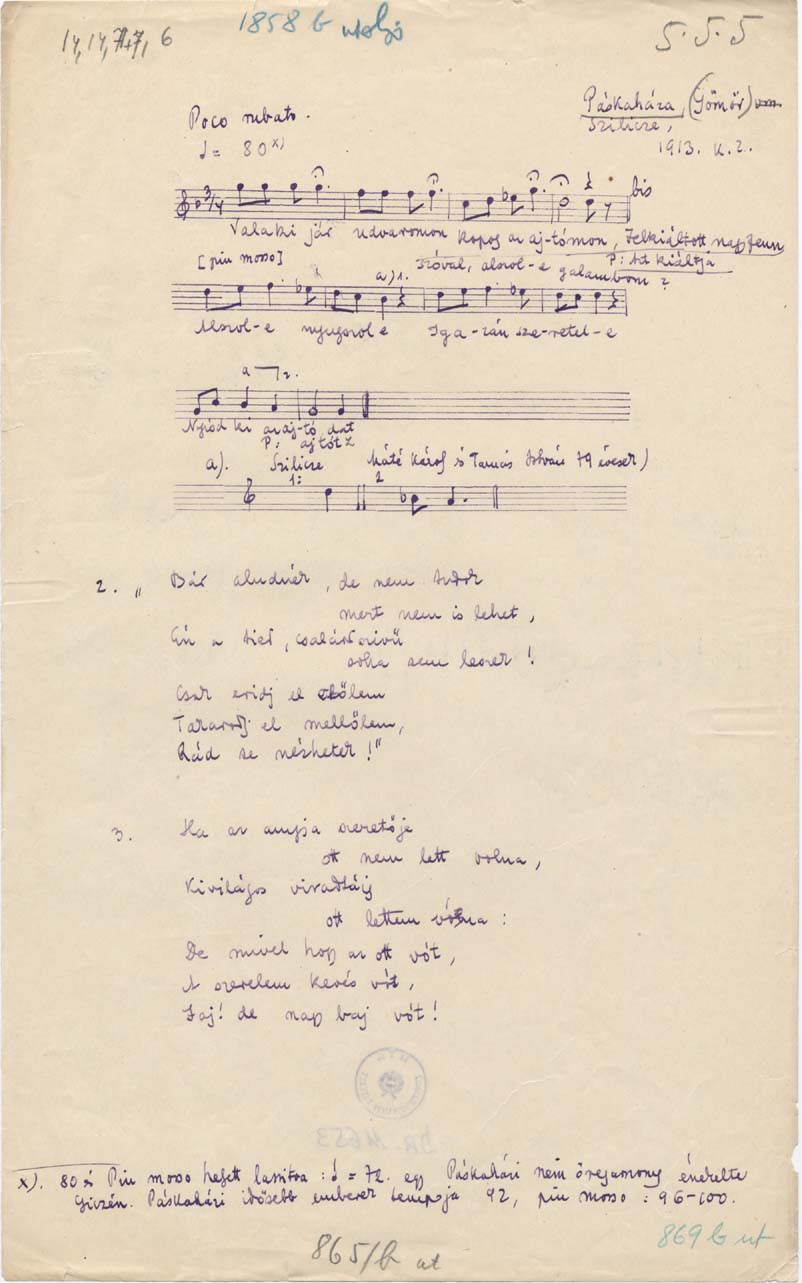 14, 14, 7+7, 6
1858 b utolsó
5. 5. 5
Poco rubato.
Páskaháza, (Gömör)
Szilicze,
♩= 80 x)
1913. K. Z.
bis
Valaki jár udvaromon kopog az aj-tómon, Felkiáltott nagy fenn
[piu mosso]
szóval, alszol-e galambom?
P: Azt kiáltja
a) 1.
Alszol-e nyugszol e Iga-zán sze-retel-e
a 2.
Nyisd ki az aj-tó dat
P: ajtót
a). Szilicze Máté Károly és Tamás István 79 évesek)
1: 2
2. „ Bár aludnék, de nem tudok
mert nem is lehet,
Én a tied, családszivű
soha sem leszek!
Csak eridj el előlem
Takarodj el mellőlem,
Rád se nézhetek!"
3. Ha az anyja szeretője
ott nem lett volna,
Kivilágos viradtáig
ott lettem vóna:
De mivel hogy az ott vót,
A szerelem kevés vót,
Jaj! de nagy baj vót!
x). 80 és Piu mosso helyett lassitva: ♩= 72. egy Páskaházi nem öregasszony énekelte
Giczén. Páskaházi idősebb emberek tempója 92, piu mosso: 96-100.
869 b ut
865/b at